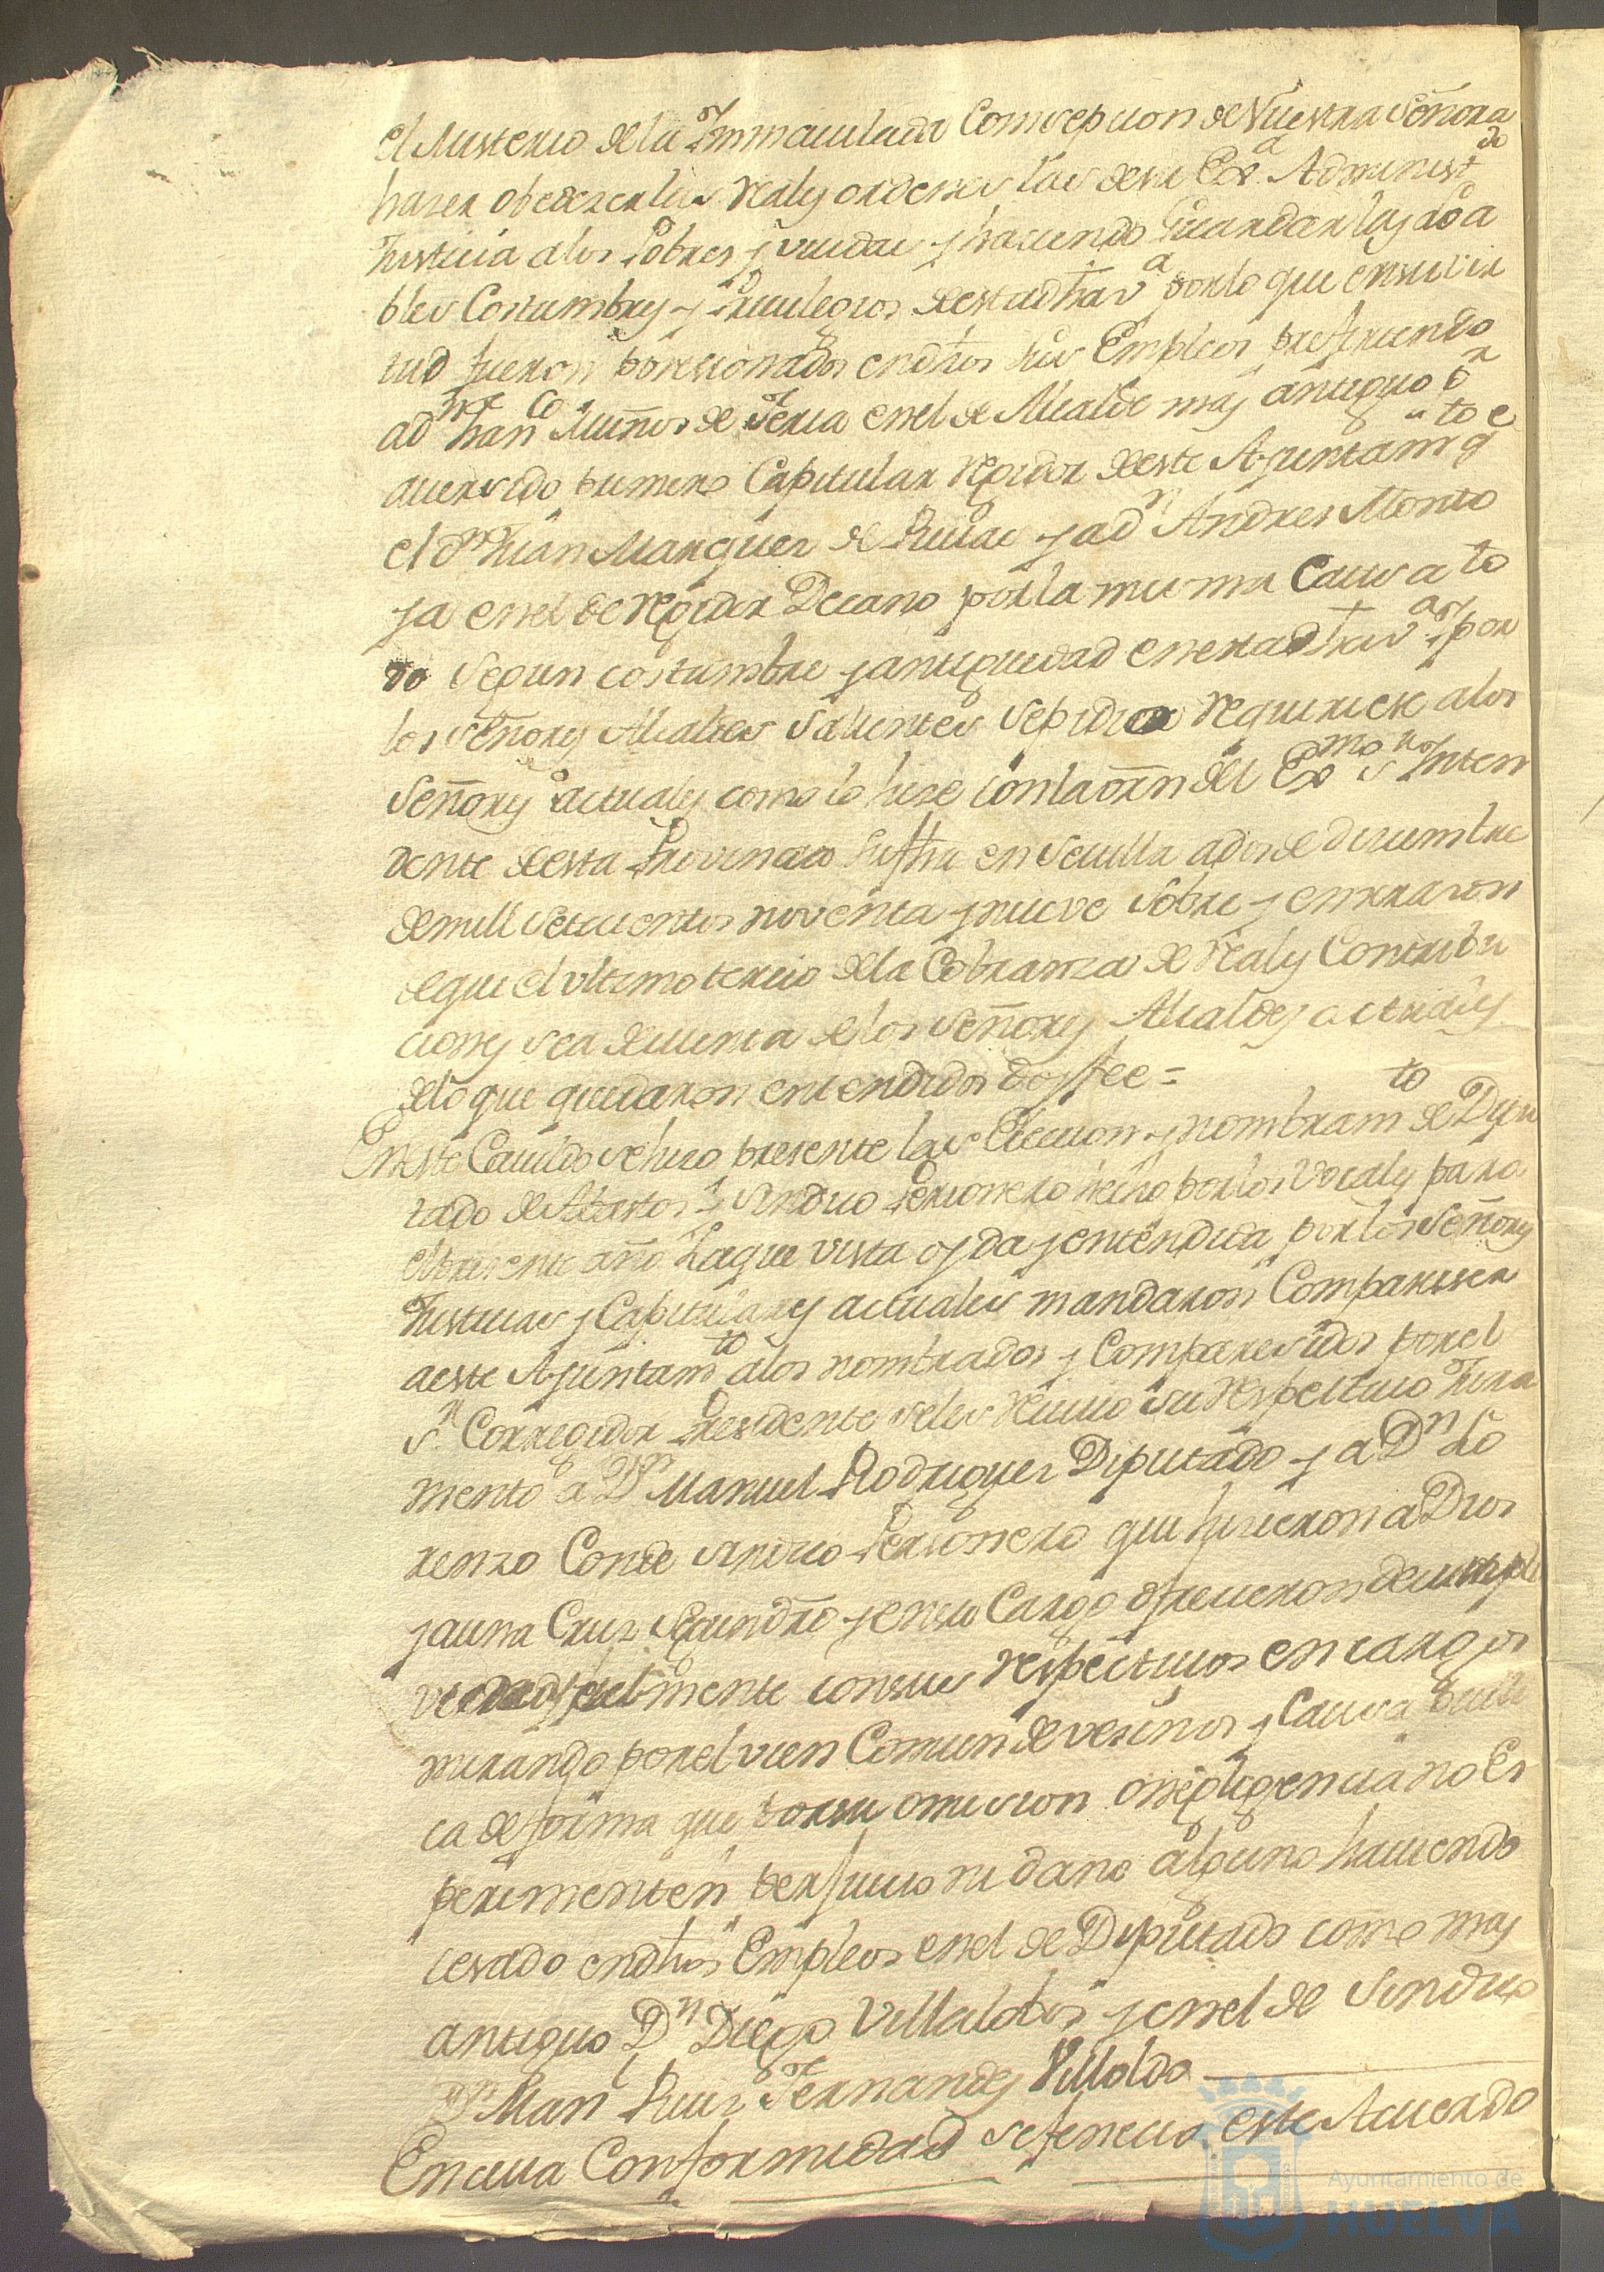 el Misterio de la Immaculada Comsepcion de Nuestra Señora
haser obedezer las Reales ordenes las de su Exa. Administdo
Justicia a los Pobres y viudas y hasiendo Guardar las loa
bles Costumbres y Privilegios de esta dha va por lo que en su vir
tud fueron posesionados en dhos sus Empleos prefiriendo
a dn Franco Muños de Feria en el de Alcalde mas antiguo pr
aver sido primero Capitular Rexidor de este Ayuntamto qe
el dn Juan Marquez de Rivas y a dn Andres Monto
ya en el de Rexidor Decano por la misma Causa to
do segun costumbre y antiguedad en esta dha va y por
los Señores Alcaldes salientes se pidio Requiriese a los
Señores actuales como lo hise con la orn del Exmo sor Inten
dente de esta Provincia su fha en Sevilla a dos de Diciembre
de mill setecientos noventa y nueve sobre y en rrason
de que el ultimo tercio de la Cobranza de Reales Contribu
ciones sea de cuenta de los Señores Alcaldes actuales
de lo que quedaron entendidos doy fee =
En este Cavildo se hiso presente las Eleccion y nombramto de Dipu
tado de Abastos y Sindico Personero hecho por los Vocales para
el presente año La que vista oyda y entendida por los Señores
Justicias y Capitulares actuales mandaron Comparescer
a este Ayuntamto a los nombrados y Comparesidos por el
sr Corregidor Presidente se les Recivio su Respectivo Jura
mento a Dn Manuel Rodriguez Diputado y a Dn Lo
renzo Conde Sindico Personero que hisieron a Dios
y a una Cruz segun dro y en su Cargo ofrecieron de cumplir
vien y fielmente con sus Respectivos encargos
mirando por el vien Comun de vesinos y Causa Publi
ca de forma que por su omision o negligencia no Es
perimenten perjuicio ni daño alguno haviendo
cesado en dhos Empleos en el de Diputado como mas
antiguo Dn Diego Villalobos y en el de Sindico
Dn Manl Ruiz Fernandes Villoldo
En cuia Conformidad se fenecio este Acuerdo
Ayuntamiento de
HUELVA